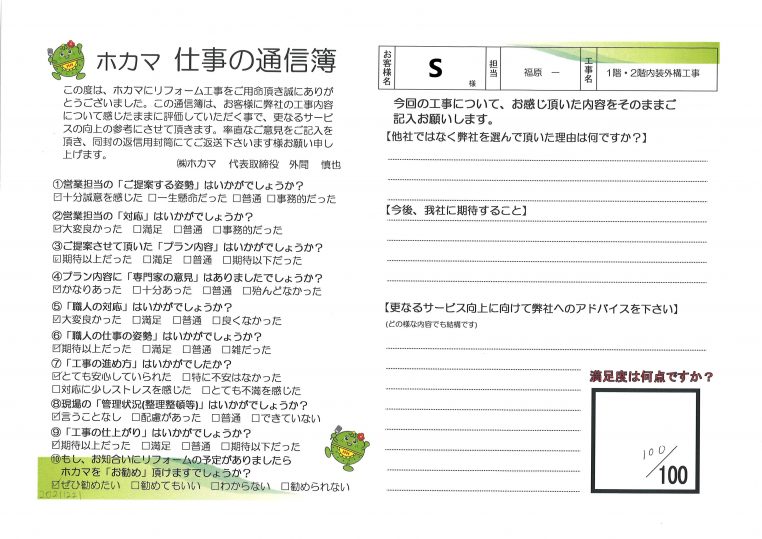 ホカマ 仕事の通信簿
この度は、ホカマにリフォーム工事をご用命頂き誠にありが
とうございました。この通信簿は、お客様に弊社の工事内容
について感じたままに評価していただく事で、更なるサービ
スの向上の参考にさせて頂きます。率直なご意見をご記入を
頂き、同封の返信用封筒にてご返送下さいます様お願い申し
上げます。
㈱ホカマ 代表取締役 外間 慎也
①営業担当の「ご提案する姿勢」はいかがでしょうか？
☑十分誠意を感じた □一生懸命だった □普通 □事務的だった
②営業担当の「対応」はいかがでしょうか？
☑大変良かった □満足 □普通 □事務的だった
③ご提案させて頂いた「プラン内容」はいかがでしょうか？
☑期待以上だった □満足 □普通 □期待以下だった
④プラン内容に「専門家の意見」はありましたでしょうか？
☑かなりあった □十分あった □普通 □殆んどなかった
⑤「職人の対応」はいかがでしょうか？
☑大変良かった □満足 □普通 □良くなかった
⑥「職人の仕事の姿勢」はいかがでしょうか？
☑期待以上だった □満足 □普通 □雑だった
⑦「工事の進め方」はいかがでしたか？
☑とても安心していられた □特に不安はなかった
□対応に少しストレスを感じた □とても不満を感じた
⑧現場の「管理状況(整理整頓等)」はいかがでしょうか？
☑言うことなし □配慮があった □普通 □できていない
⑨「工事の仕上がり」はいかがでしょうか？
☑期待以上だった □満足 □普通 □期待以下だった
⑩もし、お知合いにリフォームの予定がありましたら
ホカマを「お勧め」頂けますでしょうか？
☑ぜひ勧めたい □勧めてもいい □わからない □勧められない
20211221
お客様名 S 様 担当 福原 一 工事名 1階・2階内装外構工事
今回の工事について、お感じ頂いた内容をそのままご
記入お願いします。
【他社ではなく弊社を選んで頂いた理由は何ですか？】
【今後、我社に期待すること】
【更なるサービス向上に向けて弊社へのアドバイスを下さい】
(どの様な内容でも結構です)
満足度は何点ですか？
100/100